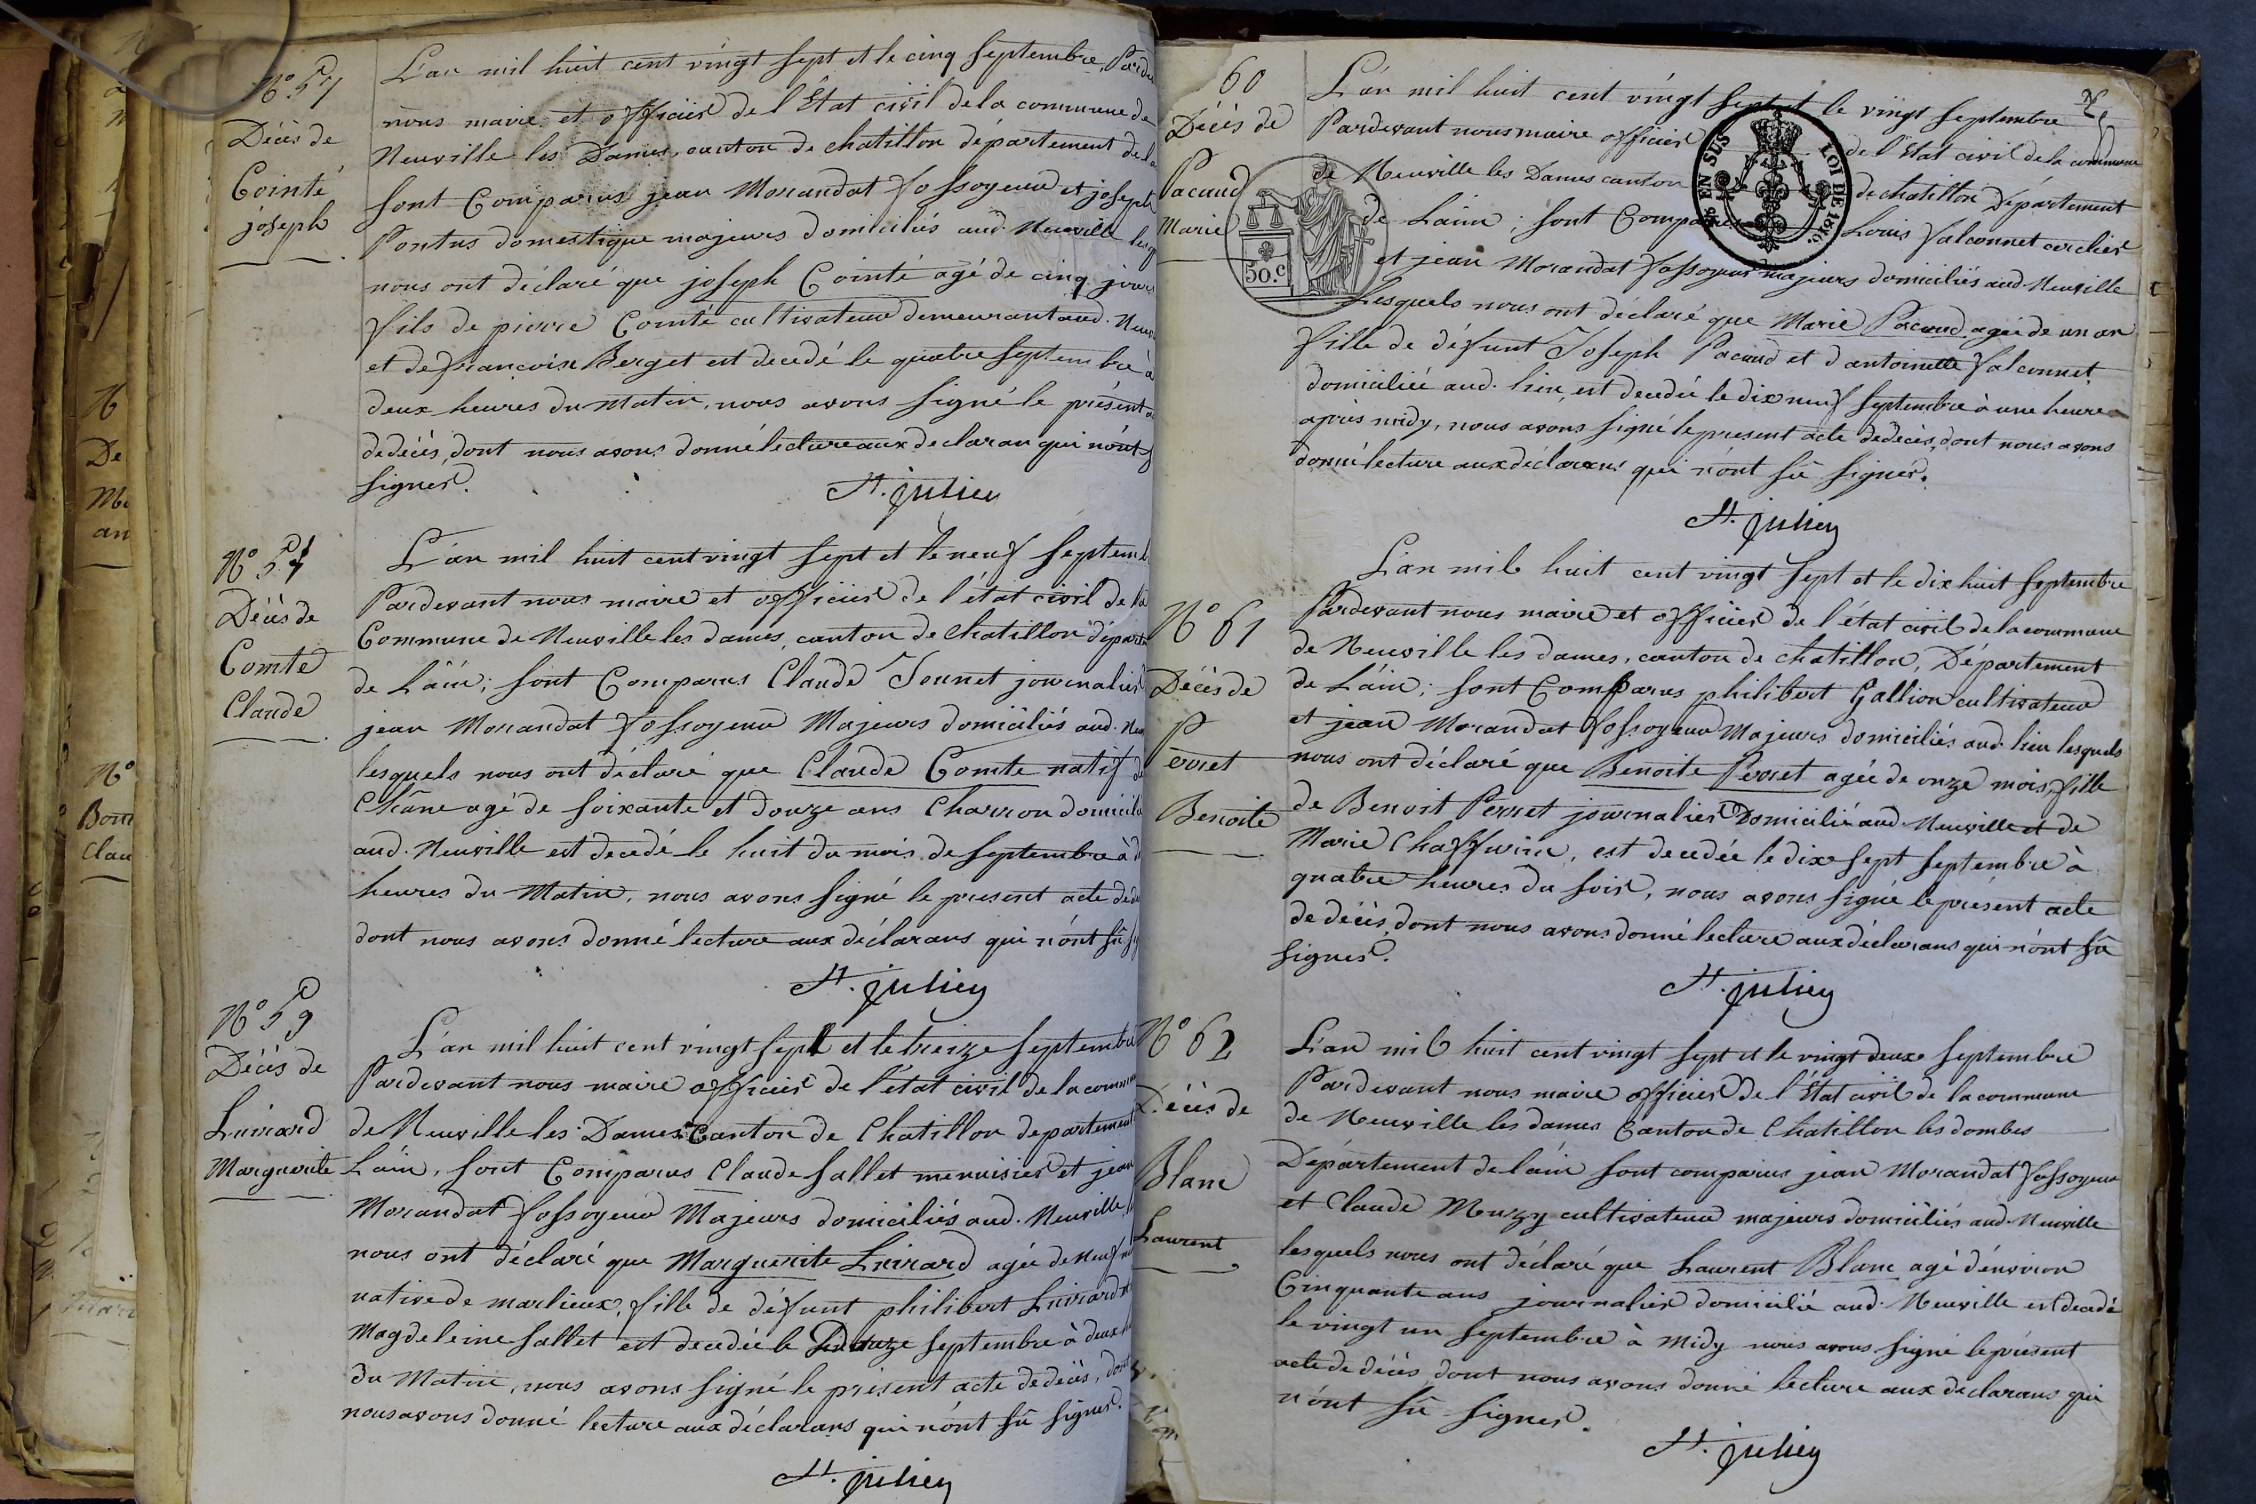 N° 57
Décès de
Cointé
joseph
L'an mil huit cent vingt sept et le cinq septembre, Parde
nous maire et officier de l'État civil de la commune de
Neuville les Dames, canton de chatillon département de l
sont Comparus jean Morandat fossoyeur et joseph
Pontus domestique majeurs domiciliés aud. Neuville lesq
nous ont déclaré que joseph Cointé agé de cinq jours
fils de pierre Cointé cultivateur demeurant aud. Neuv
et de françoise Berget est decedé le quatre septembre à
deux heures du matin, nous avons signé le présent a
de décès, dont nous avons donné lecture aux declarans qui n'ont s
signer.
St. julien
N° 58
Décès de
Comte
Claude
L'an mil huit cent vingt sept et le neuf septemb
Pardevant nous maire et officier de l'état civil de la
Commune de Neuville les dames, canton de chatillon départe
de L'ain; sont Comparus Claude Jounet journalier
jean Morandat fossoyeur Majeurs domiciliés aud. Neu
lesquels nous ont déclaré que Claude Comte natif de
Châne agé de soixante et douze ans Charron domicili
aud. Neuville est decedé le huit du mois de septembre à d
heures du Matin, nous avons signé le present acte de dé
dont nous avons donné lecture aux déclarans qui n'ont sû sig
St. julien
N° 59
Décès de
Luirard
Marguerite
L'an mil huit cent vingt sept et le treize septembre
Pardevant nous maire officier de l'état civil de la commune
de Neuville les Dames Canton de Chatillon departement
L'ain, sont Comparus Claude sallet menuisier et jean
Morandat fossoyeur Majeurs domiciliés aud. Neuville, l
nous ont déclaré que Marguerite Luirard agée de neuf
native de marlieux, fille de défunt philibert Luirard
Magdeleine sallet est decedée le Douze septembre à deux h
du Matin, nous avons signé le présent acte de décès, dont
nous avons donné lecture aux déclarans qui n'ont sû signer.
St. julien
60
Décès de
Pacaud
Marie
L'an mil huit cent vingt sept et le vingt septembre
Pardevant nous maire officier de l'État civil de la commune
de Neuville les Dames canton de chatillon Département
de L'ain; sont Comparus Louis falconnet cerclier
et jean Morandat fossoyeur majeurs domiciliés aud. Neuville
Lesquels nous ont déclaré que Marie Pacaud agée de un an
fille de défunt Joseph Pacaud et d'antoinette falconnet
domiciliée aud. lieu, est decedée le dix neuf septembre à une heure
après midy, nous avons signé le present acte de décès, dont nous avons
donné lecture aux déclarans qui n'ont sû signer.
St. julien
EN SUS
LOI DE 1816.
50. c
N° 61
Décès de
Perret
Benoite
L'an mil huit cent vingt sept et le dix huit septembre
Pardevant nous maire et officier de l'état civil de la commune
de Neuville les dames, canton de chatillon, Département
de L'ain; sont Comparus philibert Gallion cultivateur
et jean Morandat fossoyeur Majeurs domiciliés aud. lieu lesquels
nous ont déclaré que Benoite Perret agée de onze mois, fille
de Benoit Perret journalier Domicilié aud. Neuville et de
Marie Chaffurin, est decedée le dix sept septembre à
quatre heures du soir, nous avons signé le présent acte
de décès, dont nous avons donné lecture aux déclarans qui n'ont sû
signer.
St. julien
N° 62
Décès de
Blanc
Laurent
L'an mil huit cent vingt sept et le vingt deux septembre
Pardevant nous maire officier de l'État civil de la commune
de Neuville les dames Canton de Chatillon les dombes
Département de l'ain sont comparus jean Morandat fossoyeur
et Claude Muzy cultivateur majeurs domiciliés aud. Neuville
lesquels nous ont déclaré que Laurent Blanc agé d'environ
Cinquante ans journalier domicilié aud. Neuville est decedé
le vingt un septembre à Midy nous avons signé le présent
acte de décès, dont nous avons donné lecture aux declarans qui
n'ont sû signer.
St. julien